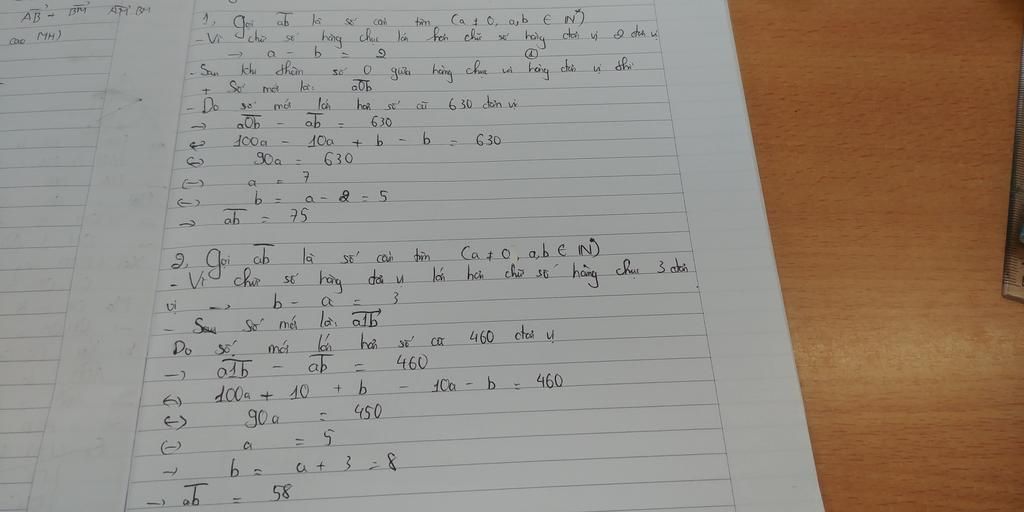 AB + BM
cao MH)
1, Gọi ab là số cần tìm (a ≠ 0, a,b ∈ N*)
- Vì chữ số hàng chục lớn hơn chữ số hàng đơn vị 2 đơn vị
→ a - b = 2 ①
- Sau khi thêm số 0 giữa hàng chục và hàng đơn vị thì
+ Số mới là: a0b
- Do số mới lớn hơn số cũ 630 đơn vị
→ a0b - ab = 630
⇔ 100a - 10a + b - b = 630
⇔ 90a = 630
⇔ a = 7
⇔ b = a - 2 = 5
→ ab = 75
2, Gọi ab là số cần tìm (a ≠ 0, a,b ∈ N*)
- Vì chữ số hàng đơn vị lớn hơn chữ số hàng chục 3 đơn
vị → b - a = 3
- Sau số mới là: a1b
Do số mới lớn hơn số cũ 460 đơn vị
→ a1b - ab = 460
⇔ 100a + 10 + b - 10a - b = 460
⇔ 90a = 450
⇔ a = 5
→ b = a + 3 = 8
→ ab = 58